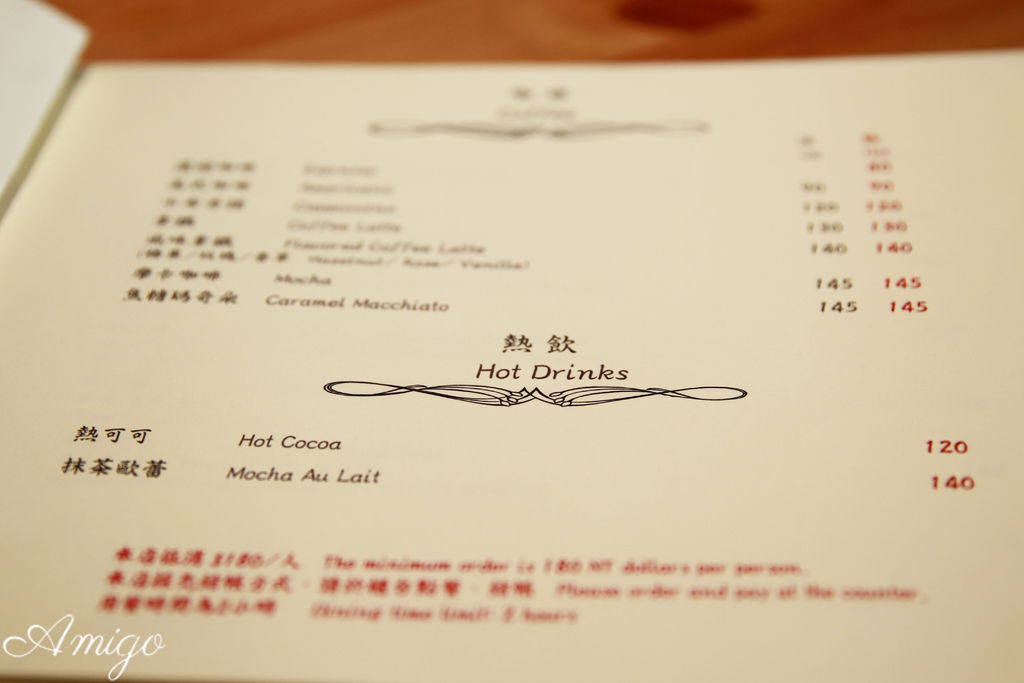 Coffee
90 90
120 120
拿鐵 Coffee Latte 130 130
風味拿鐵 Flavored Coffee Latte 140 140
(榛果/玫瑰/香草 Hazelnut/ Rose/ Vanilla)
摩卡咖啡 Mocha 145 145
焦糖瑪奇朵 Caramel Macchiato 145 145
熱飲
Hot Drinks
熱可可 Hot Cocoa 120
抹茶歐蕾 Mocha Au Lait 140
本店低消$180/人 The minimum order is 180 NT dollars per person.
Please order and pay at the counter.
Dining time limit: 2 hours
Amigo